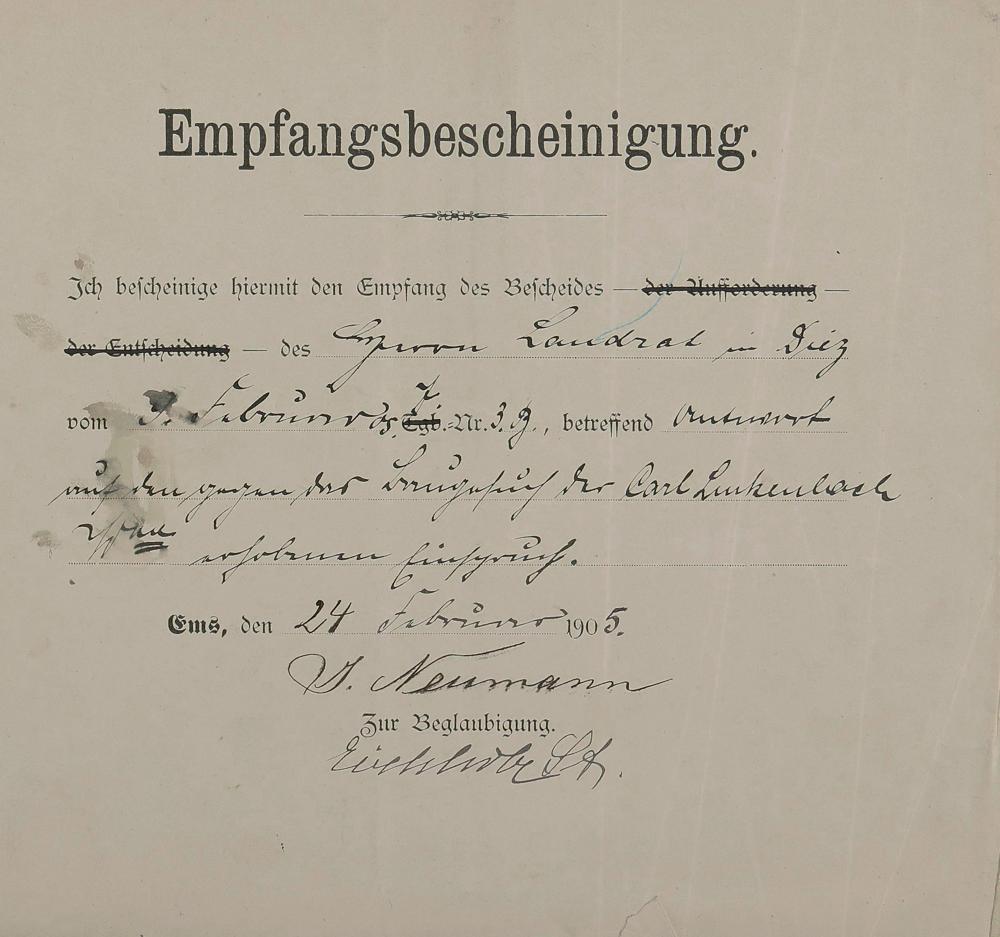 Empfangsbescheinigung.
Ich bescheinige hiermit den Empfang des Bescheides — der Aufforderung —
der Entscheidung — des Herrn Landrat in Diez
vom Februar ds. Tgb.-Nr. 3. , betreffend Antwort
auf den gegen das Baugesuch des Carl Linkenbach
erhobenen Einspruch.
Ems, den 24 Februar 1905.
J. Neumann
Zur Beglaubigung.